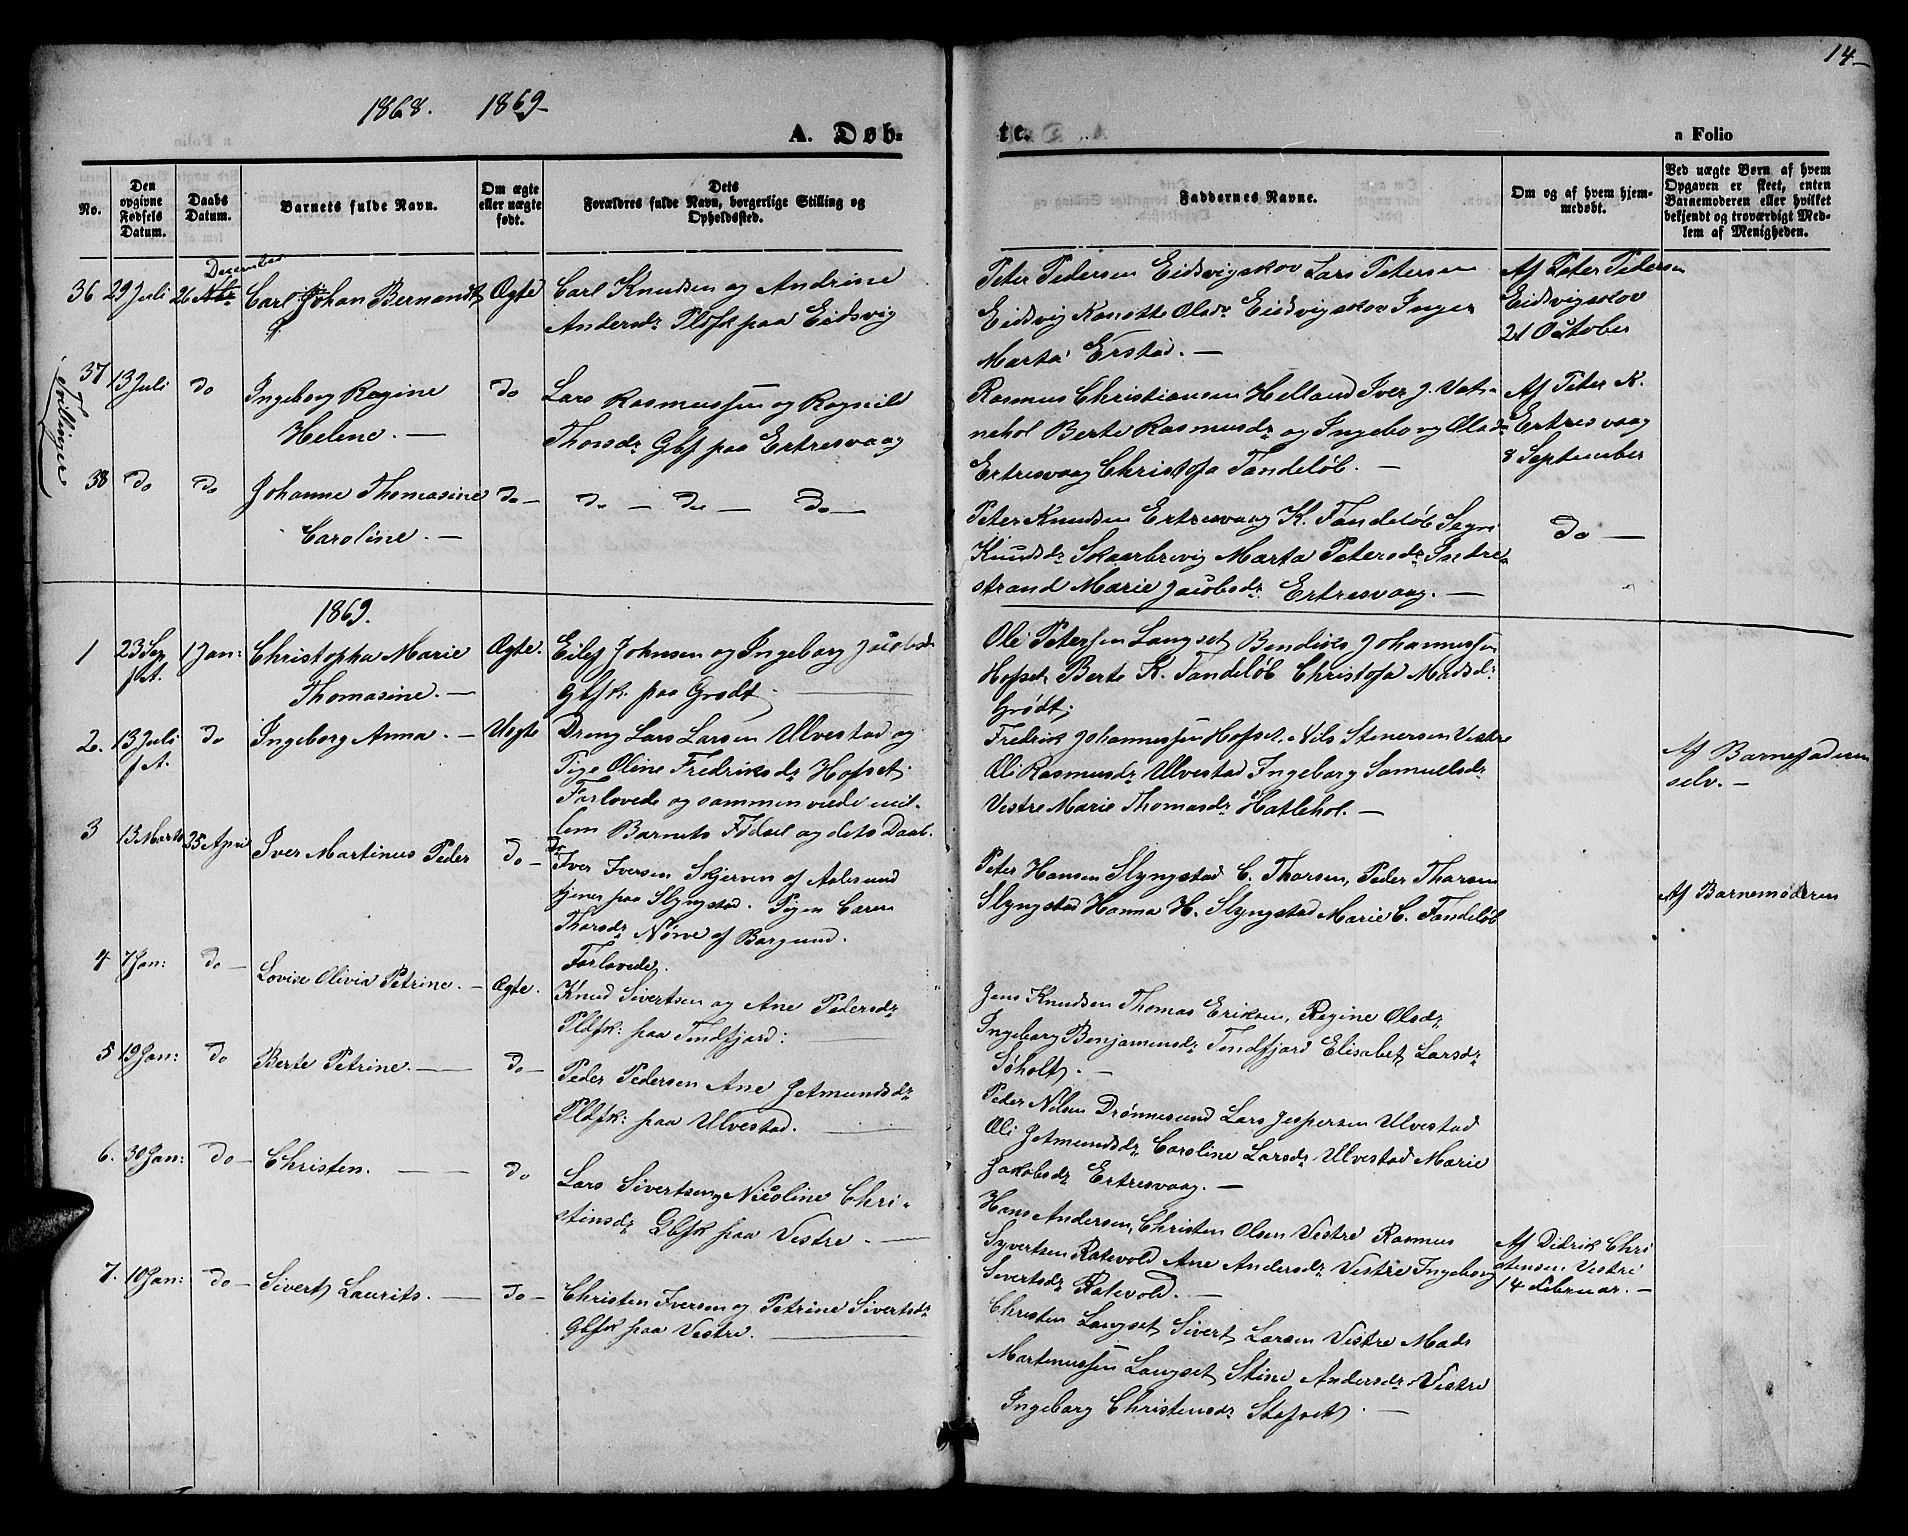 14
1868. 1869
A. Døb-
te.
a Folio
No.
Den
opgivne
Fødsels
Datum.
Daabs
Datum.
Barnets fulde Navn.
Om ægte
eller uægte
født.
Dets
Forældres fulde Navn, borgerlige Stilling og
Opholdssted.
Faddernes Navne.
Om og af hvem hjem-
medøbt.
Ved uægte Børn af hvem
Opgaven er skeet, enten
Barnemoderen eller hvilket
bekjendt og troværdigt Med-
lem af Menigheden.
December
36 29 Juli 26 Carl Johan Bernandt Ægte Carl Knudsen og Andrine
Andersdr Pldfk paa Eidsvig
Peter Pedersen Eidsvigskov Lars Petersen
Eidsvig Kanotte Olsdr Eidsvigskov Inger
Marta Erstad. —
Af Peter Pedersen
Eidsvigskov
21 October
Tvillinger
37 13 Juli do Ingeborg Regine
Helene. —
do Lars Rasmussen og Ragnild
Thorsdr Gbf paa Ertresvaag
Rasmus Christiansen Helland Iver J. Vat-
nehol Berte Rasmusdr og Ingeborg Olsdr
Ertresvaag Christofa Tandeløb. —
Af Peter K.
Ertresvaag
8 September
38 do do Johanne Thomasine
Caroline. —
do — do — do — do —
Peter Knudsen Ertresvaag K. Tandeløb Segri
Knudsdr Skaarbrevig Marta Petersdr Indre
strand Marie Jacobsdr Ertresvaag. —
do —
1869.
1 23 Sep
f A. 1 Jan: Christopha Marie
Thomasine. —
Ægte. Eilef Johnsen og Ingeborg Jacobsdr
Gbfk. paa Grødt. —
Oli Petersen Langset Bendiks Johannessen
Hofset Berte K. Tandeløb Christofa Madsdr
Grødt;
2. 13 Juli
f A. do Ingeborg Anna. — Uægte Dreng Lars Larsen Ulvestad og
Pige Oline Fredriksdr Hofset.
Forlovede og sammenviede mel-
lem Barnets Fødsel og dets Daab.
Fredrik Johannessen Hofset, Nils Stenersen Vestre
Oli Rasmusdr Ulvestad Ingeborg Samuelsdr
Vestre Marie Thomasdr Hatlehol. —
Af Barnefaderen
selv. —
3 13 Marts 25 April Iver Martinus Peder do — Iver Iversen Skjerven af Aalesund
tjener paa Slyngstad. Pigen Caren
Thorsdr Nørve af Borgund.
Forlovede.
Peter Hansen Slyngstad C. Thorsen, Peder Thorsen
Slyngstad Hanna H. Slyngstad Marie C. Tandeløb
Af Barnemoderen
4 7 Jan: do — Lovise Olivia Petrine. — Ægte. Knud Sivertsen og Ane Pedersdr
Pldfk: paa Tindfjord: —
Jens Knudsen Thomas Eriksen, Regine Olsdr
Ingeborg Benjaminsdr Tindfjord Elisabet Larsdr
Søholt. —
5 19 Jan: do Berte Petrine. — do — Peder Pedersen Ane Jetmundsdr
Pldfk: paa Ulvestad. —
Peder Nilsen Drønnesund Lars Jespersen Ulvestad
Oli Jetmundsdr Caroline Larsdr Ulvestad Marie
Jakobsdr Ertresvaag. —
6. 30 Jan: do — Christen. — do Lars Sivertsen og Nicoline Chri-
stinsdr Gbfk paa Vestre. —
Hans Andersen, Christen Olsen Vestre Rasmus
Syvertsen Ratevold Ane Andersdr Vestre Ingeborg
Sivertsdr Ratevold. —
Af Didrik Chri
stensen Vestre
14 Februar. —
7. 10 Jan: do — Sivert Laurits. — do — Christen Iversen og Petrine Sivertsdr
Gbfk paa Vestre. —
Christen Langset Sivert Larsen Vestre Mads
Martinussen Langset Stine Andersdr Vestre
Ingeborg Christensdr Stofset. —